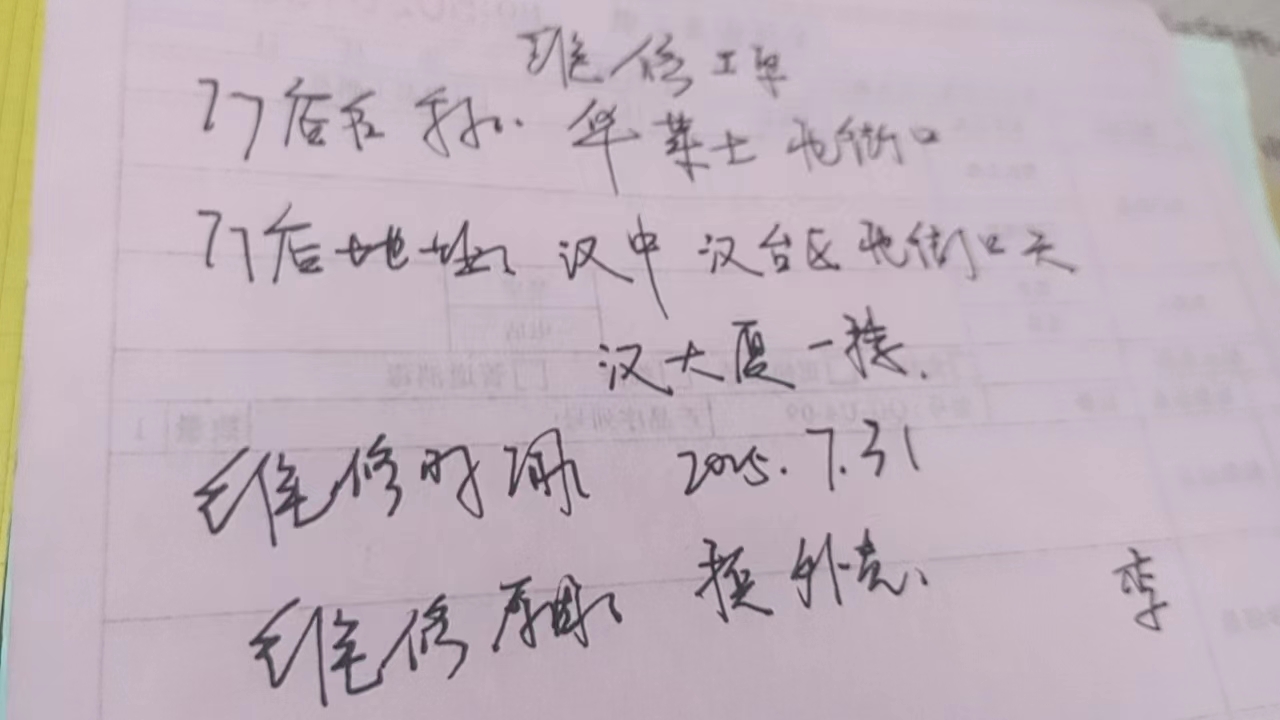 维修工单
门店名称: 华莱士北街口
门店地址: 汉中 汉台区北街口天
汉大厦一楼.
维修时间: 2025.7.31
维修原因: 换外壳.
李